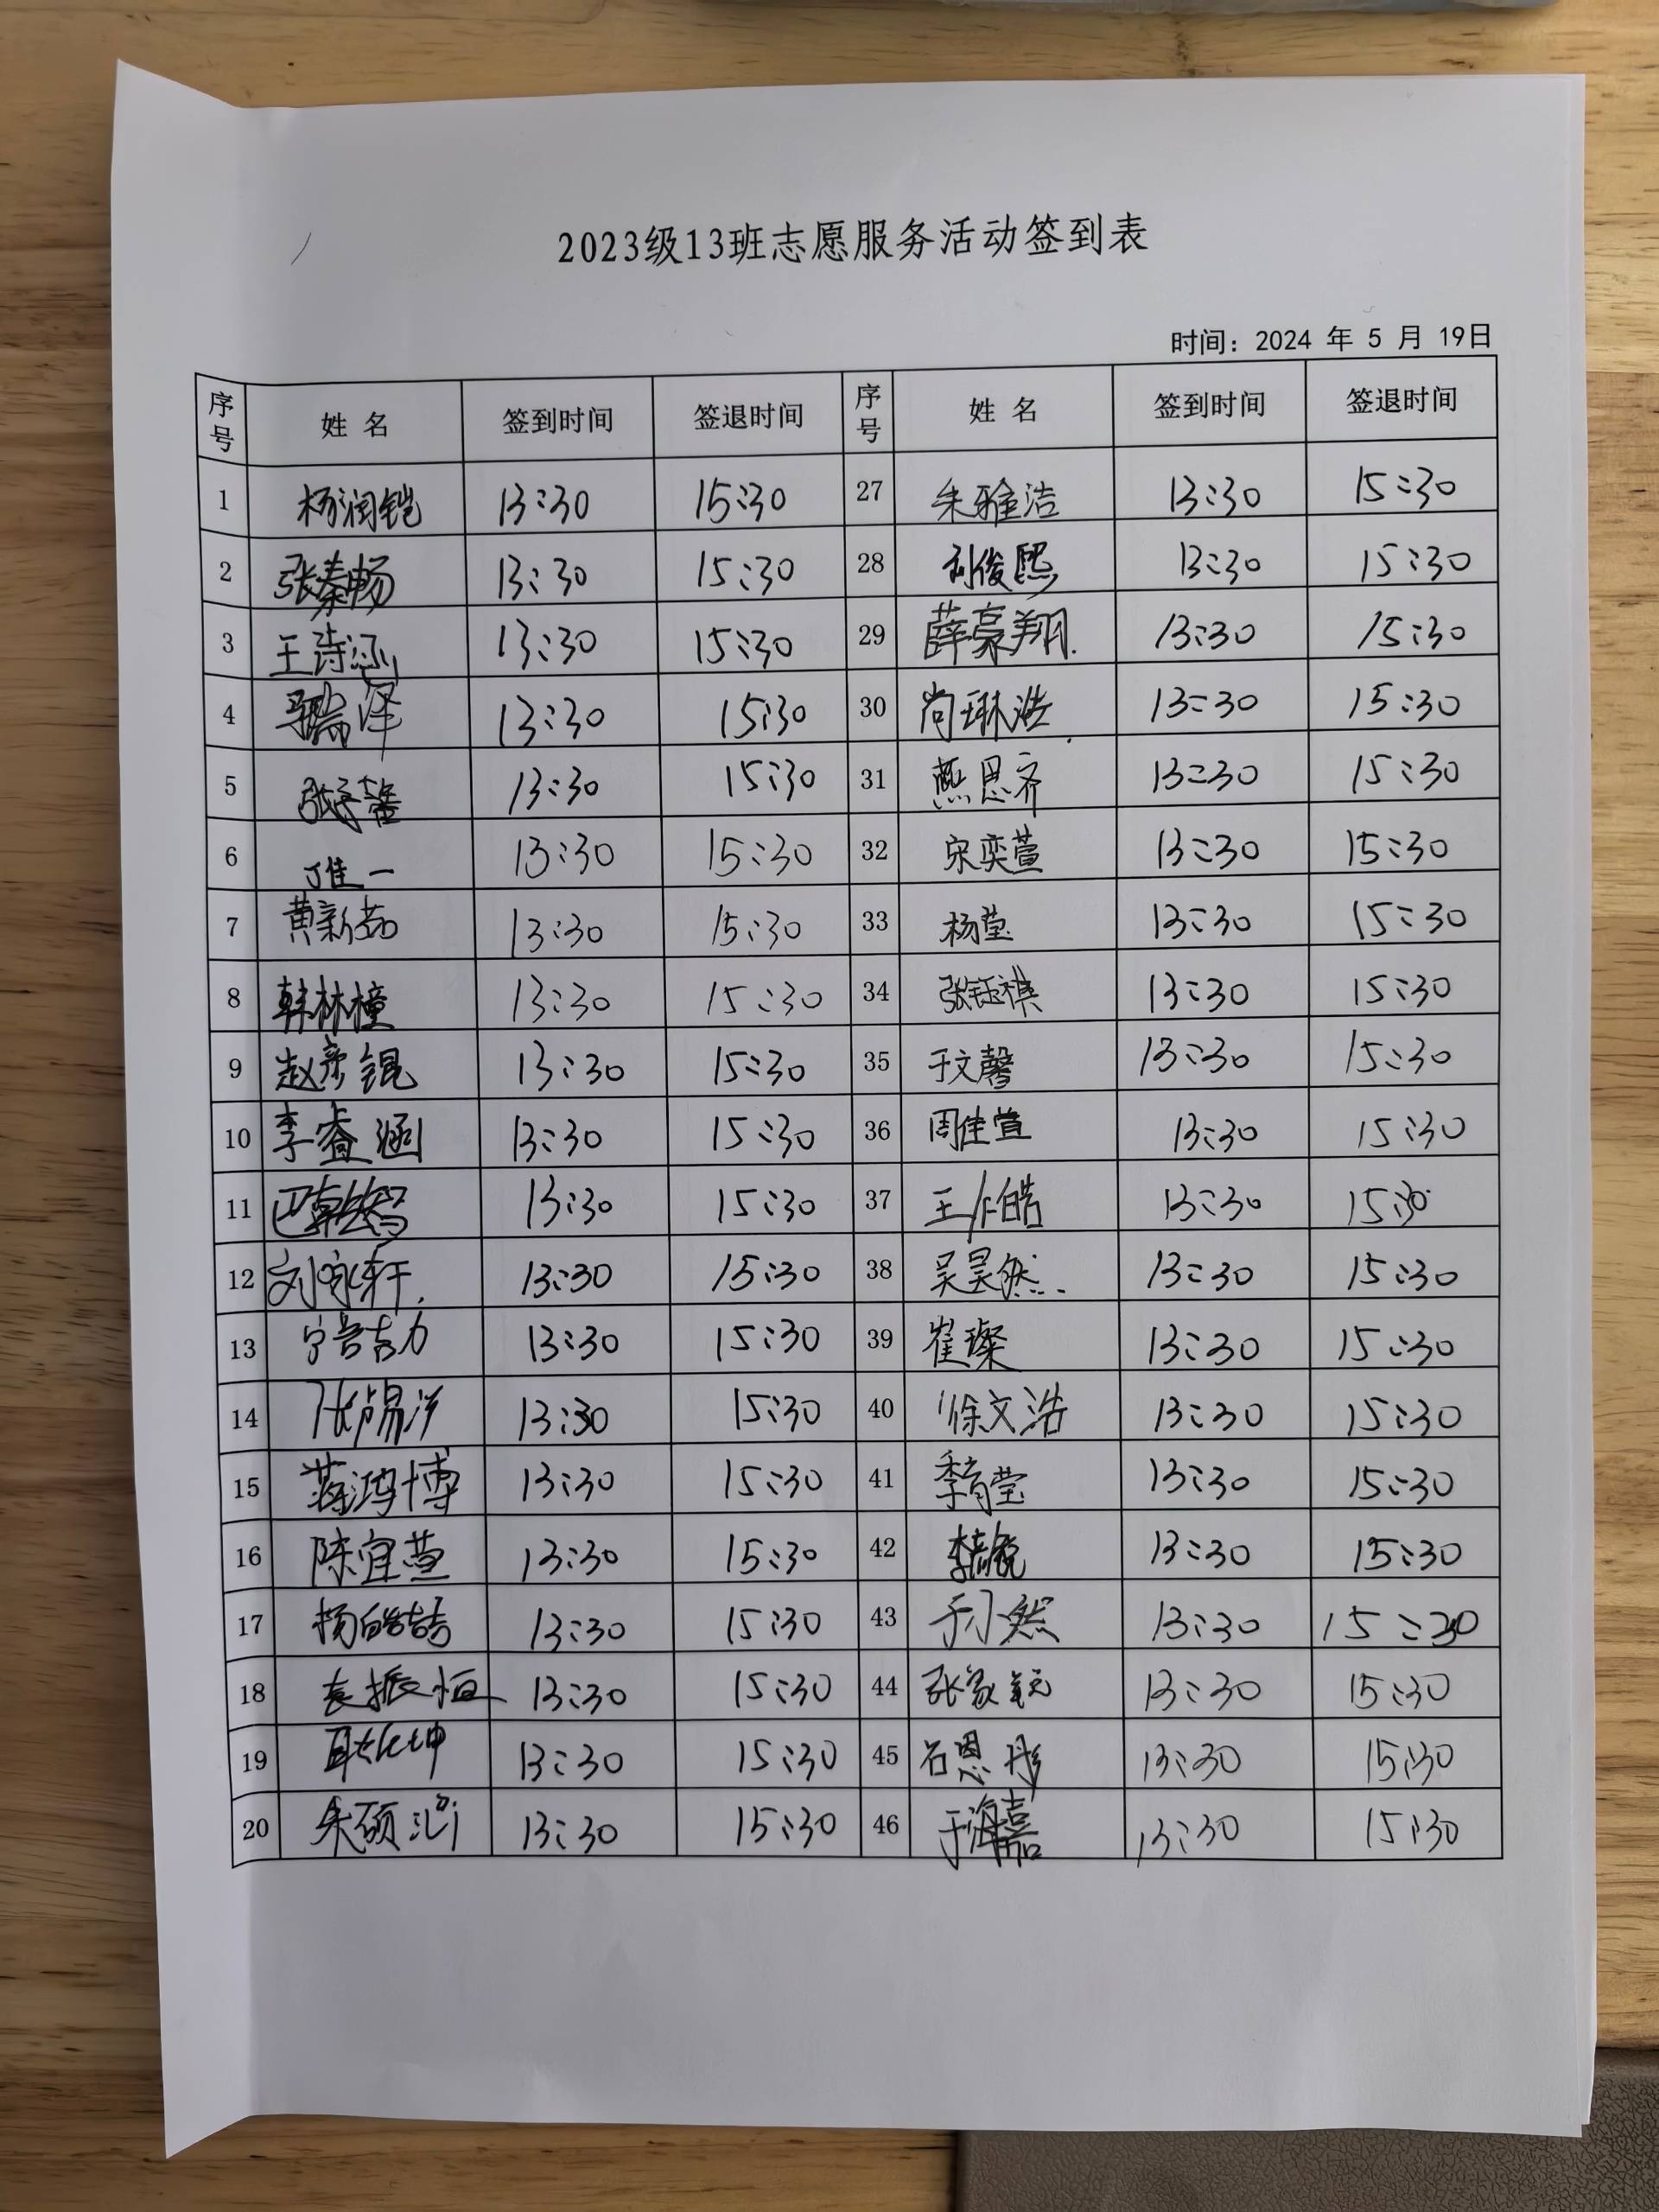 2023级13班志愿服务活动签到表
时间：2024 年 5 月 19日
序号 姓 名 签到时间 签退时间 序号 姓 名 签到时间 签退时间
1 杨润铠 13:30 15:30 27 朱雅洁 13:30 15:30
2 张秦畅 13:30 15:30 28 刘俊熙 13:30 15:30
3 王诗涵 13:30 15:30 29 薛豪翔 13:30 15:30
4 瑞泽 13:30 15:30 30 尚琳浩 13:30 15:30
5 张馨 13:30 15:30 31 燕思齐 13:30 15:30
6 唯一 13:30 15:30 32 宋奕萱 13:30 15:30
7 黄新茹 13:30 15:30 33 杨莹 13:30 15:30
8 韩林橦 13:30 15:30 34 张钰祺 13:30 15:30
9 赵彦锟 13:30 15:30 35 于文馨 13:30 15:30
10 李睿涵 13:30 15:30 36 周佳萱 13:30 15:30
11 巴 13:30 15:30 37 王作皓 13:30 15:30
12 刘家轩 13:30 15:30 38 吴昊然 13:30 15:30
13 13:30 15:30 39 崔璨 13:30 15:30
14 张 13:30 15:30 40 徐文浩 13:30 15:30
15 蒋鸿博 13:30 15:30 41 李育莹 13:30 15:30
16 陈宜萱 13:30 15:30 42 李 13:30 15:30
17 杨皓喆 13:30 15:30 43 于小然 13:30 15:30
18 袁振恒 13:30 15:30 44 张家钰 13:30 15:30
19 耿 坤 13:30 15:30 45 石恩彤 13:30 15:30
20 朱硕 13:30 15:30 46 于海嘉 13:30 15:30